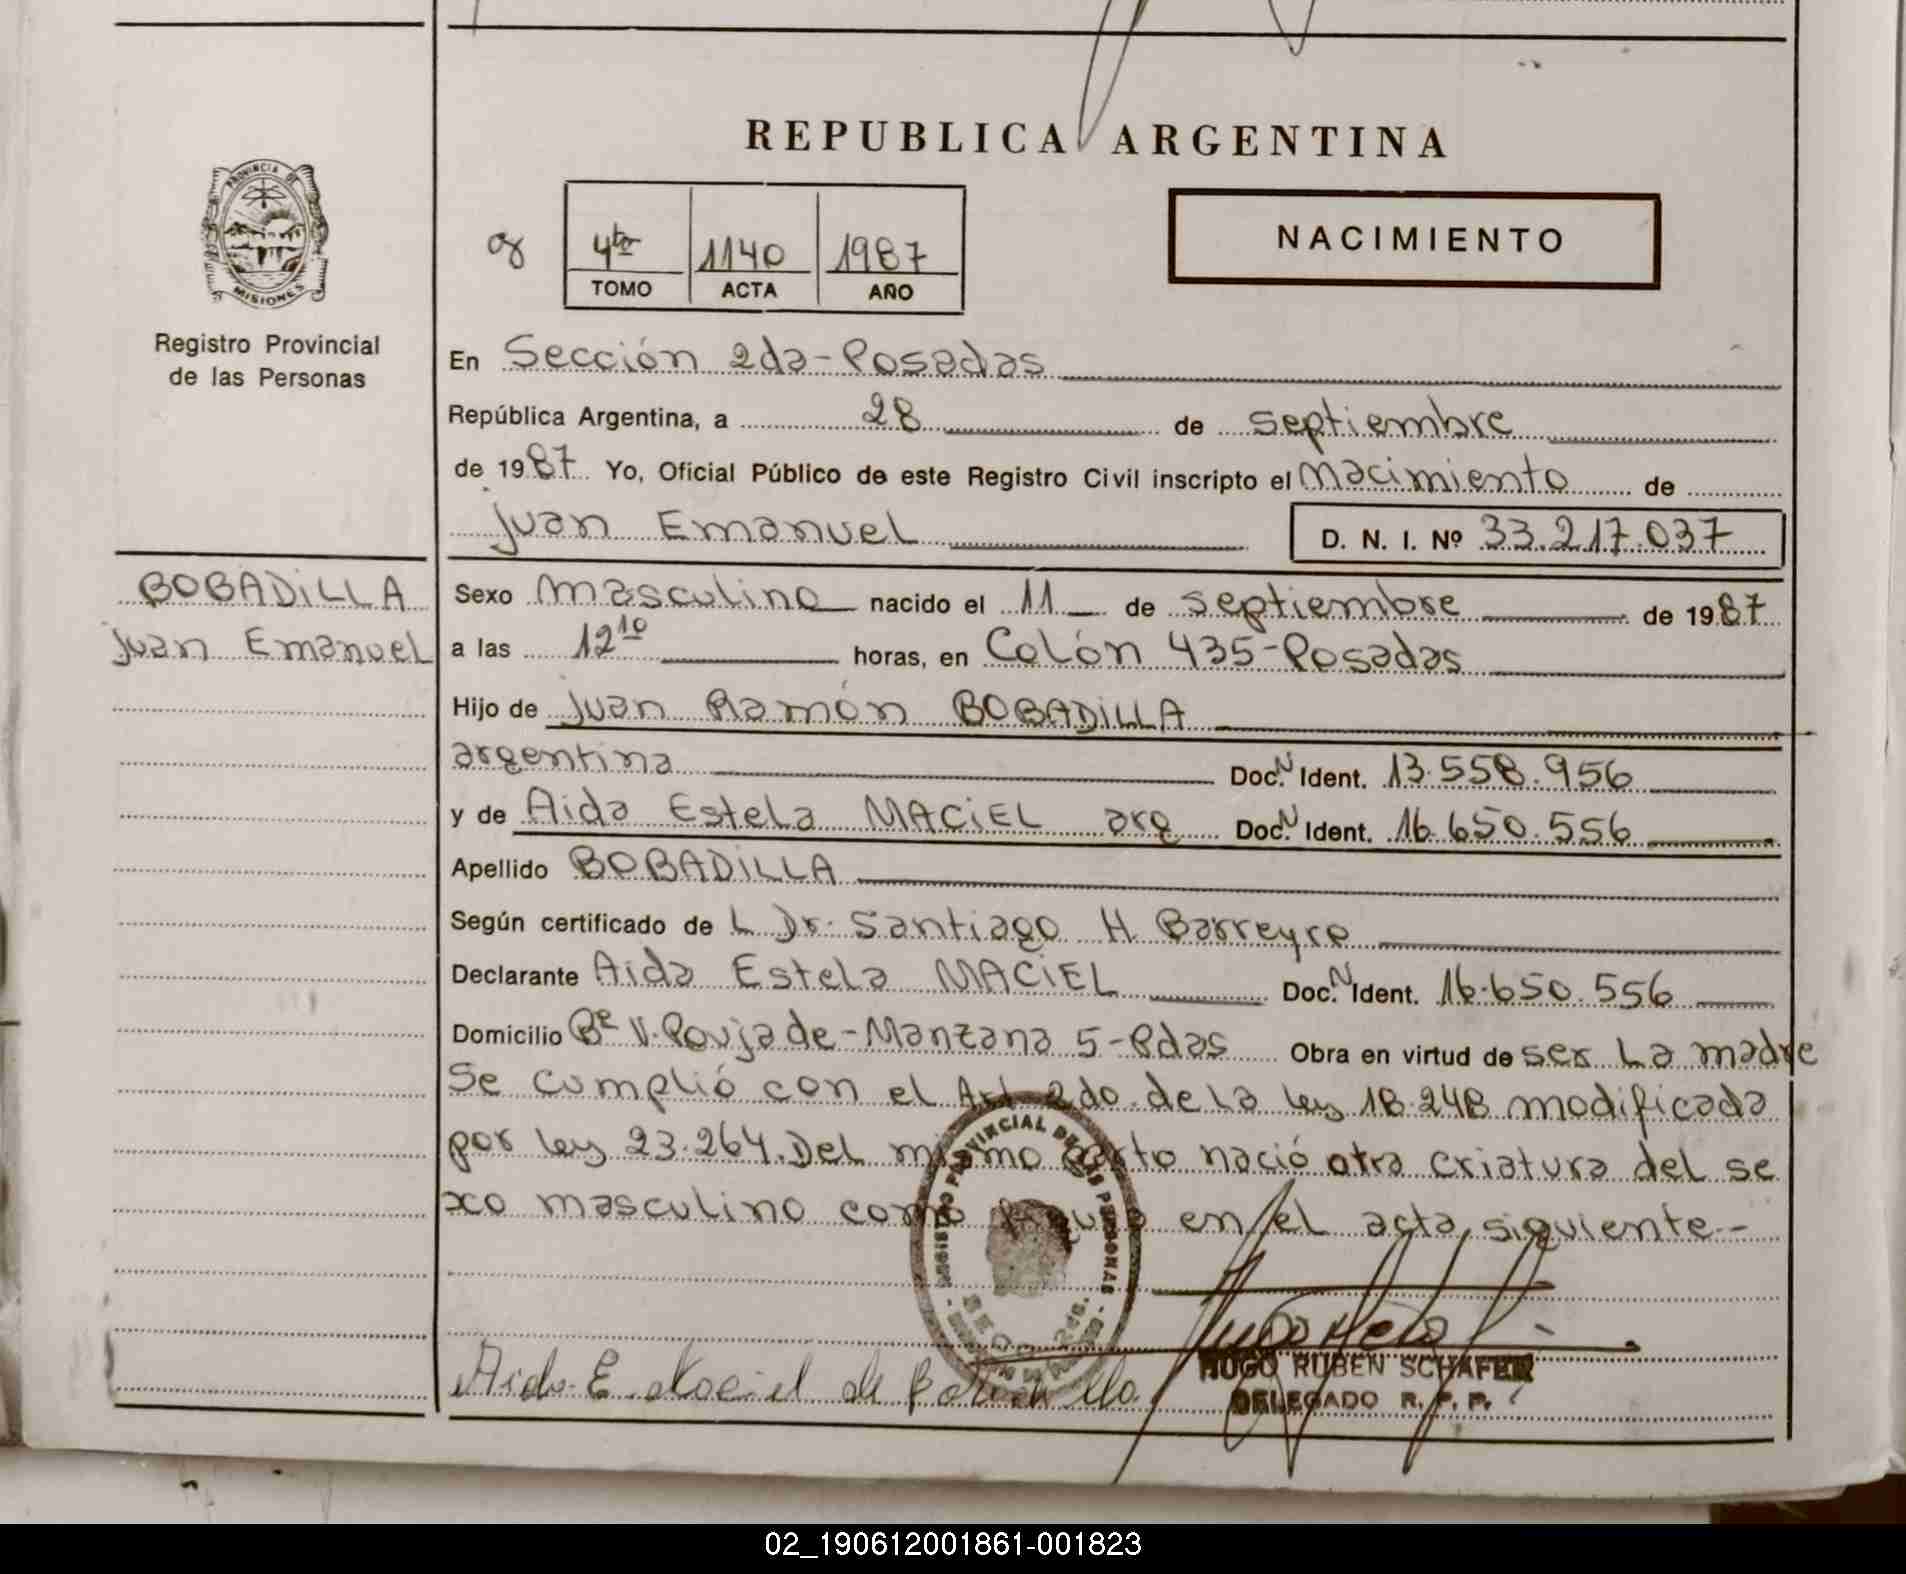 REPUBLICA ARGENTINA
PROVINCIA DE
MISIONES
Registro Provincial
de las Personas
4to 1140 1987
TOMO ACTA AÑO
NACIMIENTO
En Sección 2da-Posadas
República Argentina, a 28 de septiembre
de 1987. Yo, Oficial Público de este Registro Civil inscripto el Nacimiento de
Juan Emanuel D. N. I. Nº 33.217.037
BOBADILLA
Juan Emanuel
Sexo masculino nacido el 11 de septiembre de 1987
a las 12 10 horas, en Colón 435-Posadas
Hijo de Juan Ramón BOBADILLA
argentina Doc. N Ident. 13.558.956
y de Aida Estela MACIEL arg Doc. N Ident. 16.650.556
Apellido BOBADILLA
Según certificado de L Dr. Santiago H Barreyro
Declarante Aida Estela MACIEL Doc. N Ident. 16.650.556
Domicilio Bº V. Poujade-Manzana 5-Pdas Obra en virtud de ser La madre
Se cumplió con el Art 2do de La Ley 18.248 modificada
por Ley 23.264. Del mismo parto nació otra criatura del se
xo masculino como figura en el acta siguiente-
REGISTRO PROVINCIAL DE LAS PERSONAS
Aida E. Maciel de Bobadilla
HUGO RUBEN SCHAFER
DELEGADO R. P. P.
02_190612001861-001823